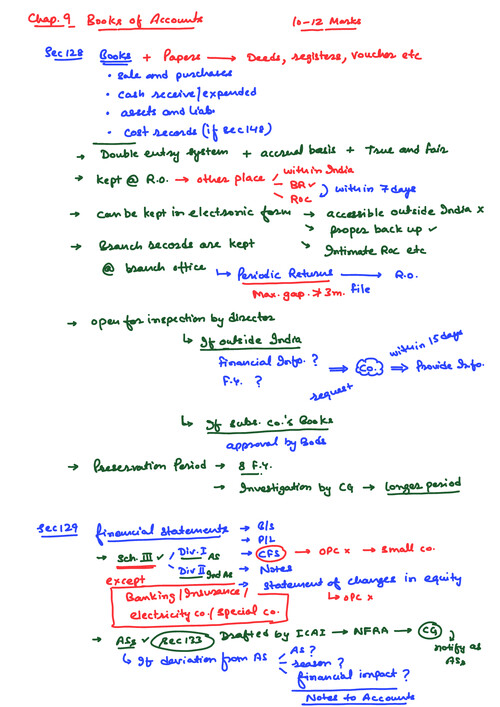 Chap. 9 Books of Accounts 10-12 Marks
Sec 128 Books + Papers → Deeds, registers, Voucher etc
• Sale and purchases
• Cash receive/expended
• assets and Liab.
• Cost records (if Sec 148)
→ Double entry system + accrual basis + True and Fair
→ kept @ R.O. → other place within India
BR ✓
ROC
within 7 days
→ Can be kept in electronic form → accessible outside India x
→ proper back up ✓
→ Intimate ROC etc
→ Branch records are kept
@ branch office ↳ Periodic Returns → R.O.
Max. gap. ≯ 3m. file
→ open for inspection by director
↳ If outside India
Financial Info. ?
F.Y. ?
request
⇒ Co. ⇒ Provide Info.
within 15 days
↳ If subs. co.'s Books
approval by Bods
→ Preservation Period → 8 F.Y.
→ Investigation by CG → longer period
Sec 129 financial statements → B/S
→ P/L
→ CFS → OPC x → Small co.
→ Notes
→ Statement of changes in equity
↳ OPC x
→ Sch. III ✓ Div. I AS
Div II Ind AS
except
Banking / Insurance /
electricity co. / Special co.
→ ASs ✓ Sec 133 Drafted by ICAI → NFRA → CG
notify as
ASs
↳ If deviation from AS AS ?
reason ?
financial impact ?
Notes to Accounts